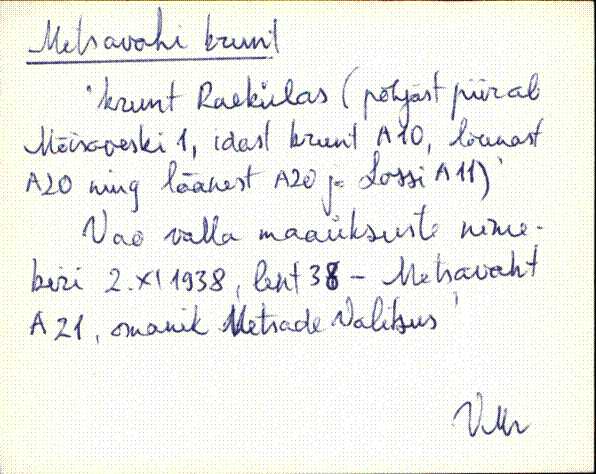 Metsavahi krunt
'krunt Raekülas (põhjast piirab
Mõisaveski 1, idast krunt A10, lõunast
A20 ning läänest A20 ja Lossi A11)'
Vao valla maaüksuste nime-
kiri 2.XI 1938, leht 38 - Metsavaht
A21, omanik Metsade Valitsus'